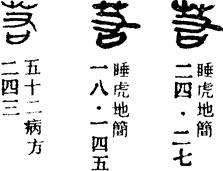 睡虎地簡
二四・二七
睡虎地簡
一八・一四五
五十二病方
二四三